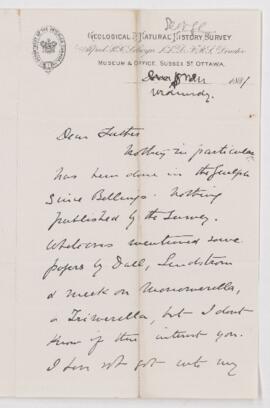 GEOLOGICAL & NATURAL HISTORY SURVEY
Alfred R.C. Selwyn, LL.D. F.R.S. Director
MUSEUM & OFFICE, SUSSEX ST. OTTAWA.
188
Dear Father
Nothing in particular
has been done in the Guelph
since Billings. Nothing
published by the Survey.
Whiteaves mentioned some
papers by Dall, Lindstrom
& Meek on
or Trimerella, but I don't
know if they interest you.
I have not got into my